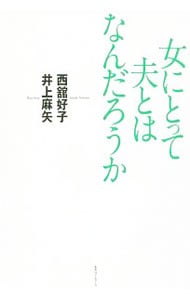 女にとって
夫とは
なんだろうか
西舘好子
井上麻矢